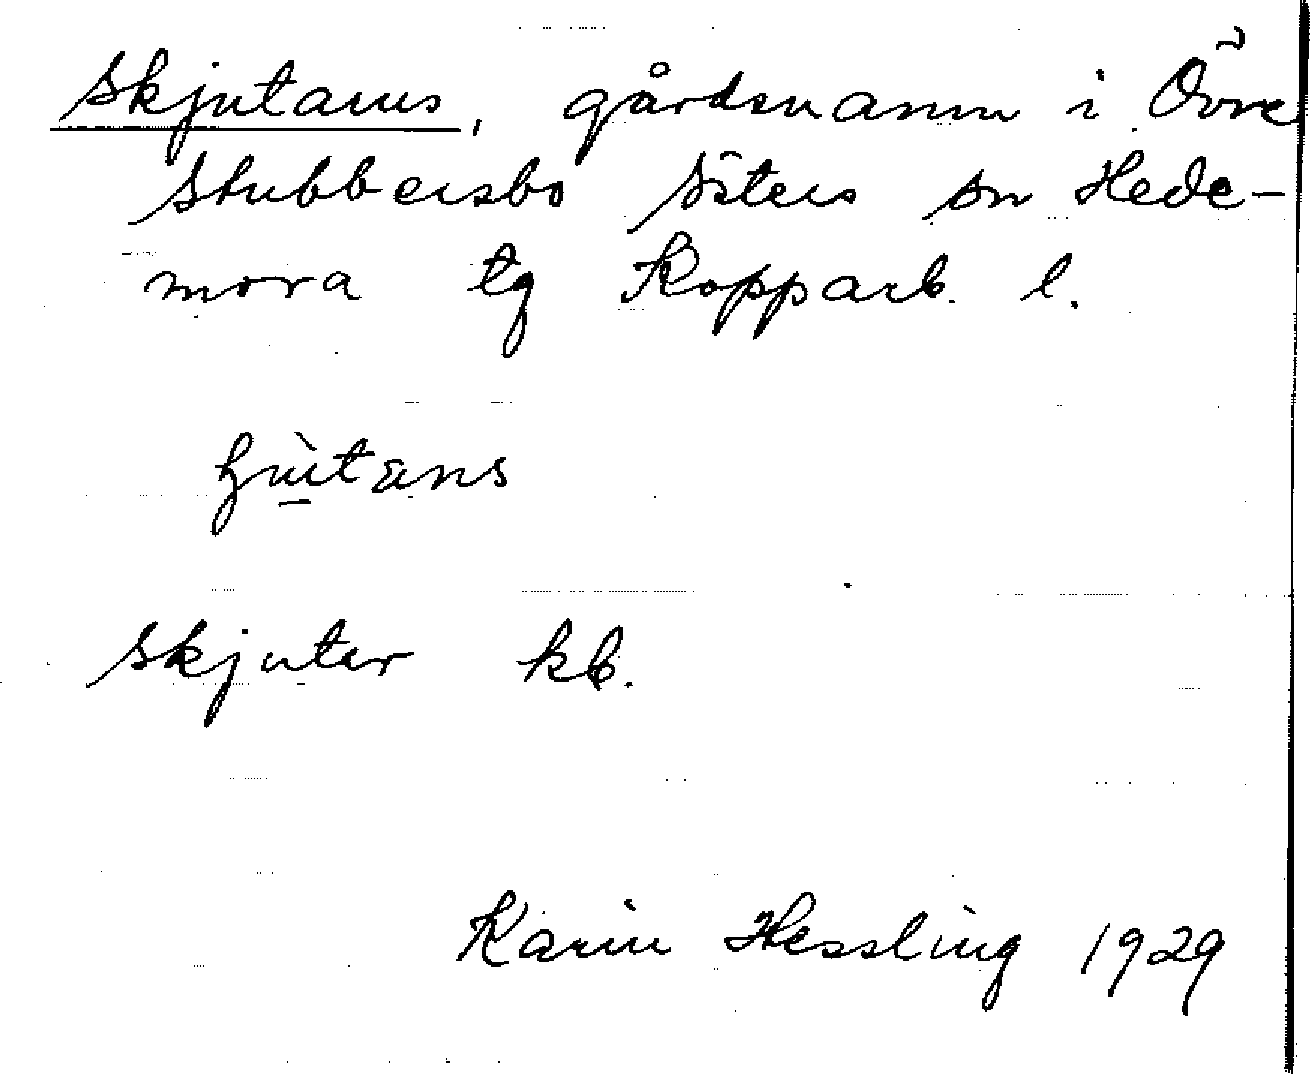 Skjutarns, gårdsnamn i Övre
Stubbersbo Säters sn Hede-
mora tg Kopparb. l.
Skjuter kb.
Karin Hessling 1929